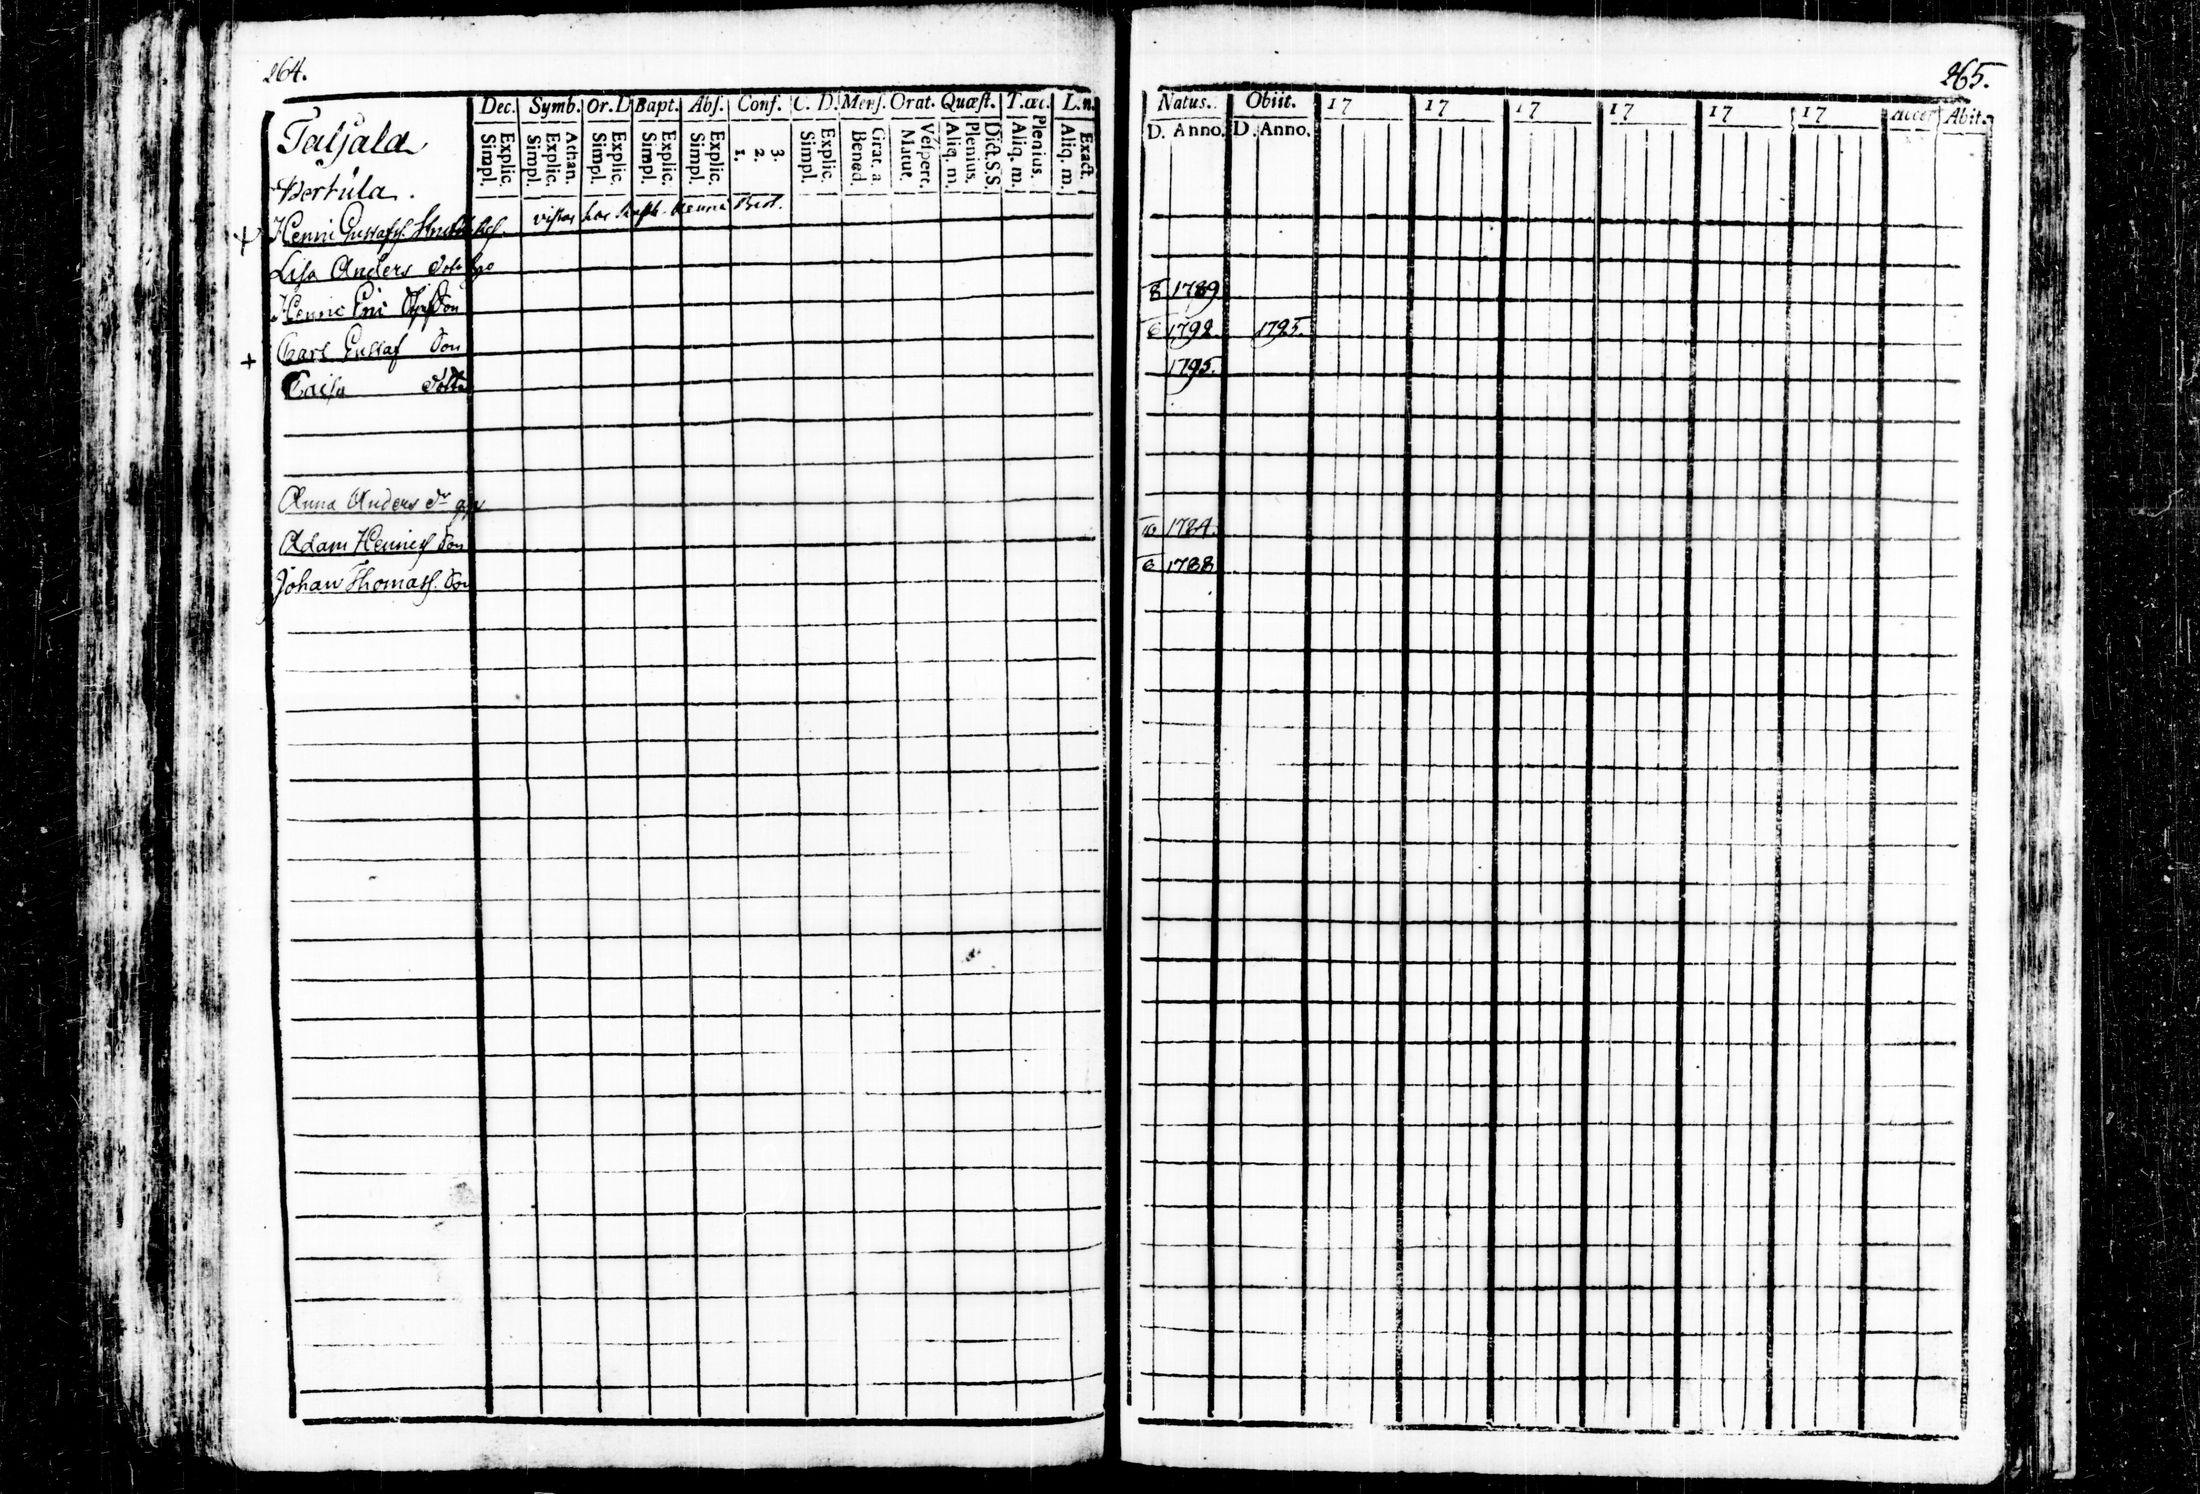 264.
Dec. Symb. Or. D. Bapt. Abs. Conf. C. D. Mens. Orat. Quæst. T. œc. L. n.
Explic. Simpl. Athan. Explic. Simpl. Explic. Simpl. Explic. Simpl. Explic. Simpl. 3. 2. 1. Explic. Simpl. Grat. a. Bened. Vespert. Matut. Dict. S. S. Plenius. Aliq. m. Plenius. Aliq. m. Exact. Aliq. m.
Taljala
Pertula.
Henric Gustafss.
Lisa Anders
Henric Eric Son
+ Carl Gustaf Son
Caisa Dotter
Anna Anders dr
Adam Henricss Son
Johan Thomass. Son
265.
Natus. Obiit. 17 17 17 17 17 17 Acces. Abit.
D. Anno. D. Anno.
8 1789
6 1792 1795.
1795.
10 1784.
6 1788